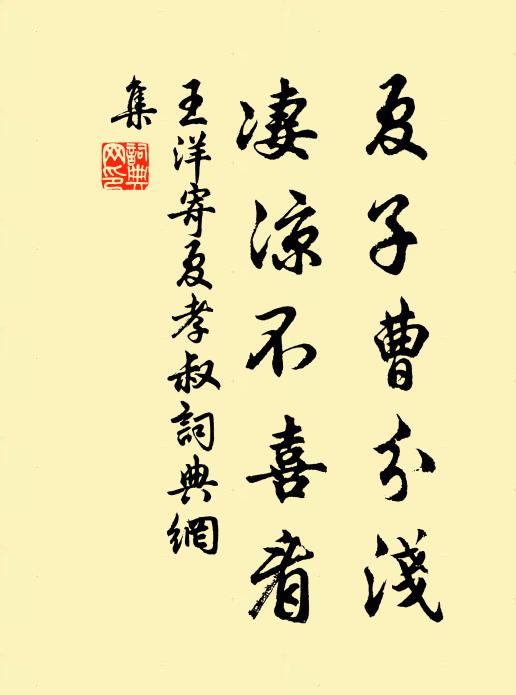 夏子曹分淺
淒涼不喜看
王洋寄夏孝叔詞典網
集
詞典
网印